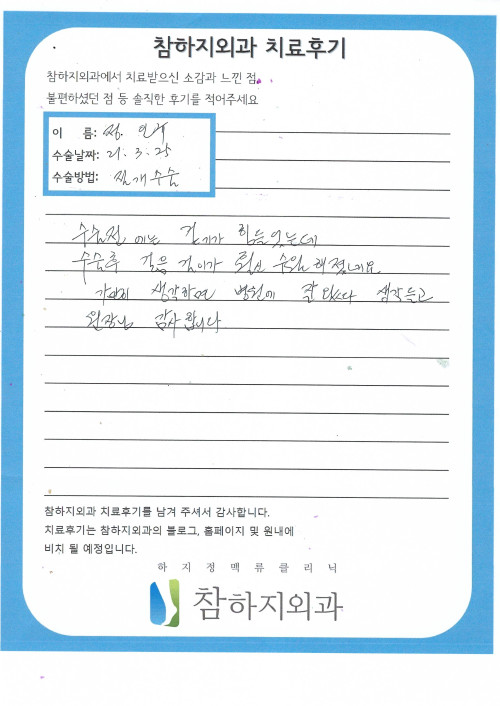 참하지외과 치료후기
참하지외과에서 치료받으신 소감과 느낀 점,
불편하셨던 점 등 솔직한 후기를 적어주세요
이 름: 정.
수술날짜: 21. 3. 25
수술방법: 절개수술
수술전 에는 걷기가 힘들었는데
수술후 걸음 걸이가 훨신 수월해졌네요
생각하면 병원에 잘 왔다 생각들고
원장님 감사합니다
참하지외과 치료후기를 남겨 주셔서 감사합니다.
치료후기는 참하지외과의 블로그, 홈페이지 및 원내에
비치 될 예정입니다.
하지정맥류클리닉
참하지외과